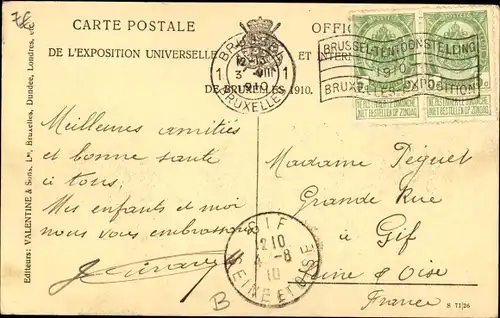 76
CARTE POSTALE
OFFIC
DE L'EXPOSITION UNIVERSELLE ET INTERN
DE BRUXELLES 1910.
BRUSSEL
12-13
1 3 VIII 1
1910
BRUXELLES
BRUSSEL-TENTOONSTELLING
1910
BRUXELLES-EXPOSITION
NE PAS LIVRER LE DIMANCHE
NIET BESTELLEN OP ZONDAG
NE PAS LIVRER LE DIMANCHE
NIET BESTELLEN OP ZONDAG
Editeurs: VALENTINE & Sons, Ld., Bruxelles, Dundee, Londres, etc.
Meilleures amitiés
et bonne santé
à tous;
Mes enfants et moi
nous vous embrassons
Madame Péquet
Grande Rue
à Gif
Seine & Oise
France
GIF
12 10
4 -8
10
SEINE ET OISE
B
S 71/26